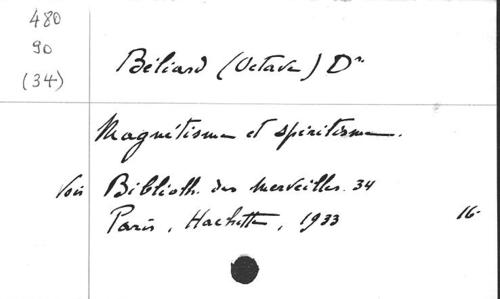 480
90
(34)
Béliard (Octave) Dr.
Magnétisme et spiritisme.
Voir Biblioth. des merveilles. 34
Paris, Hachette, 1933 16-